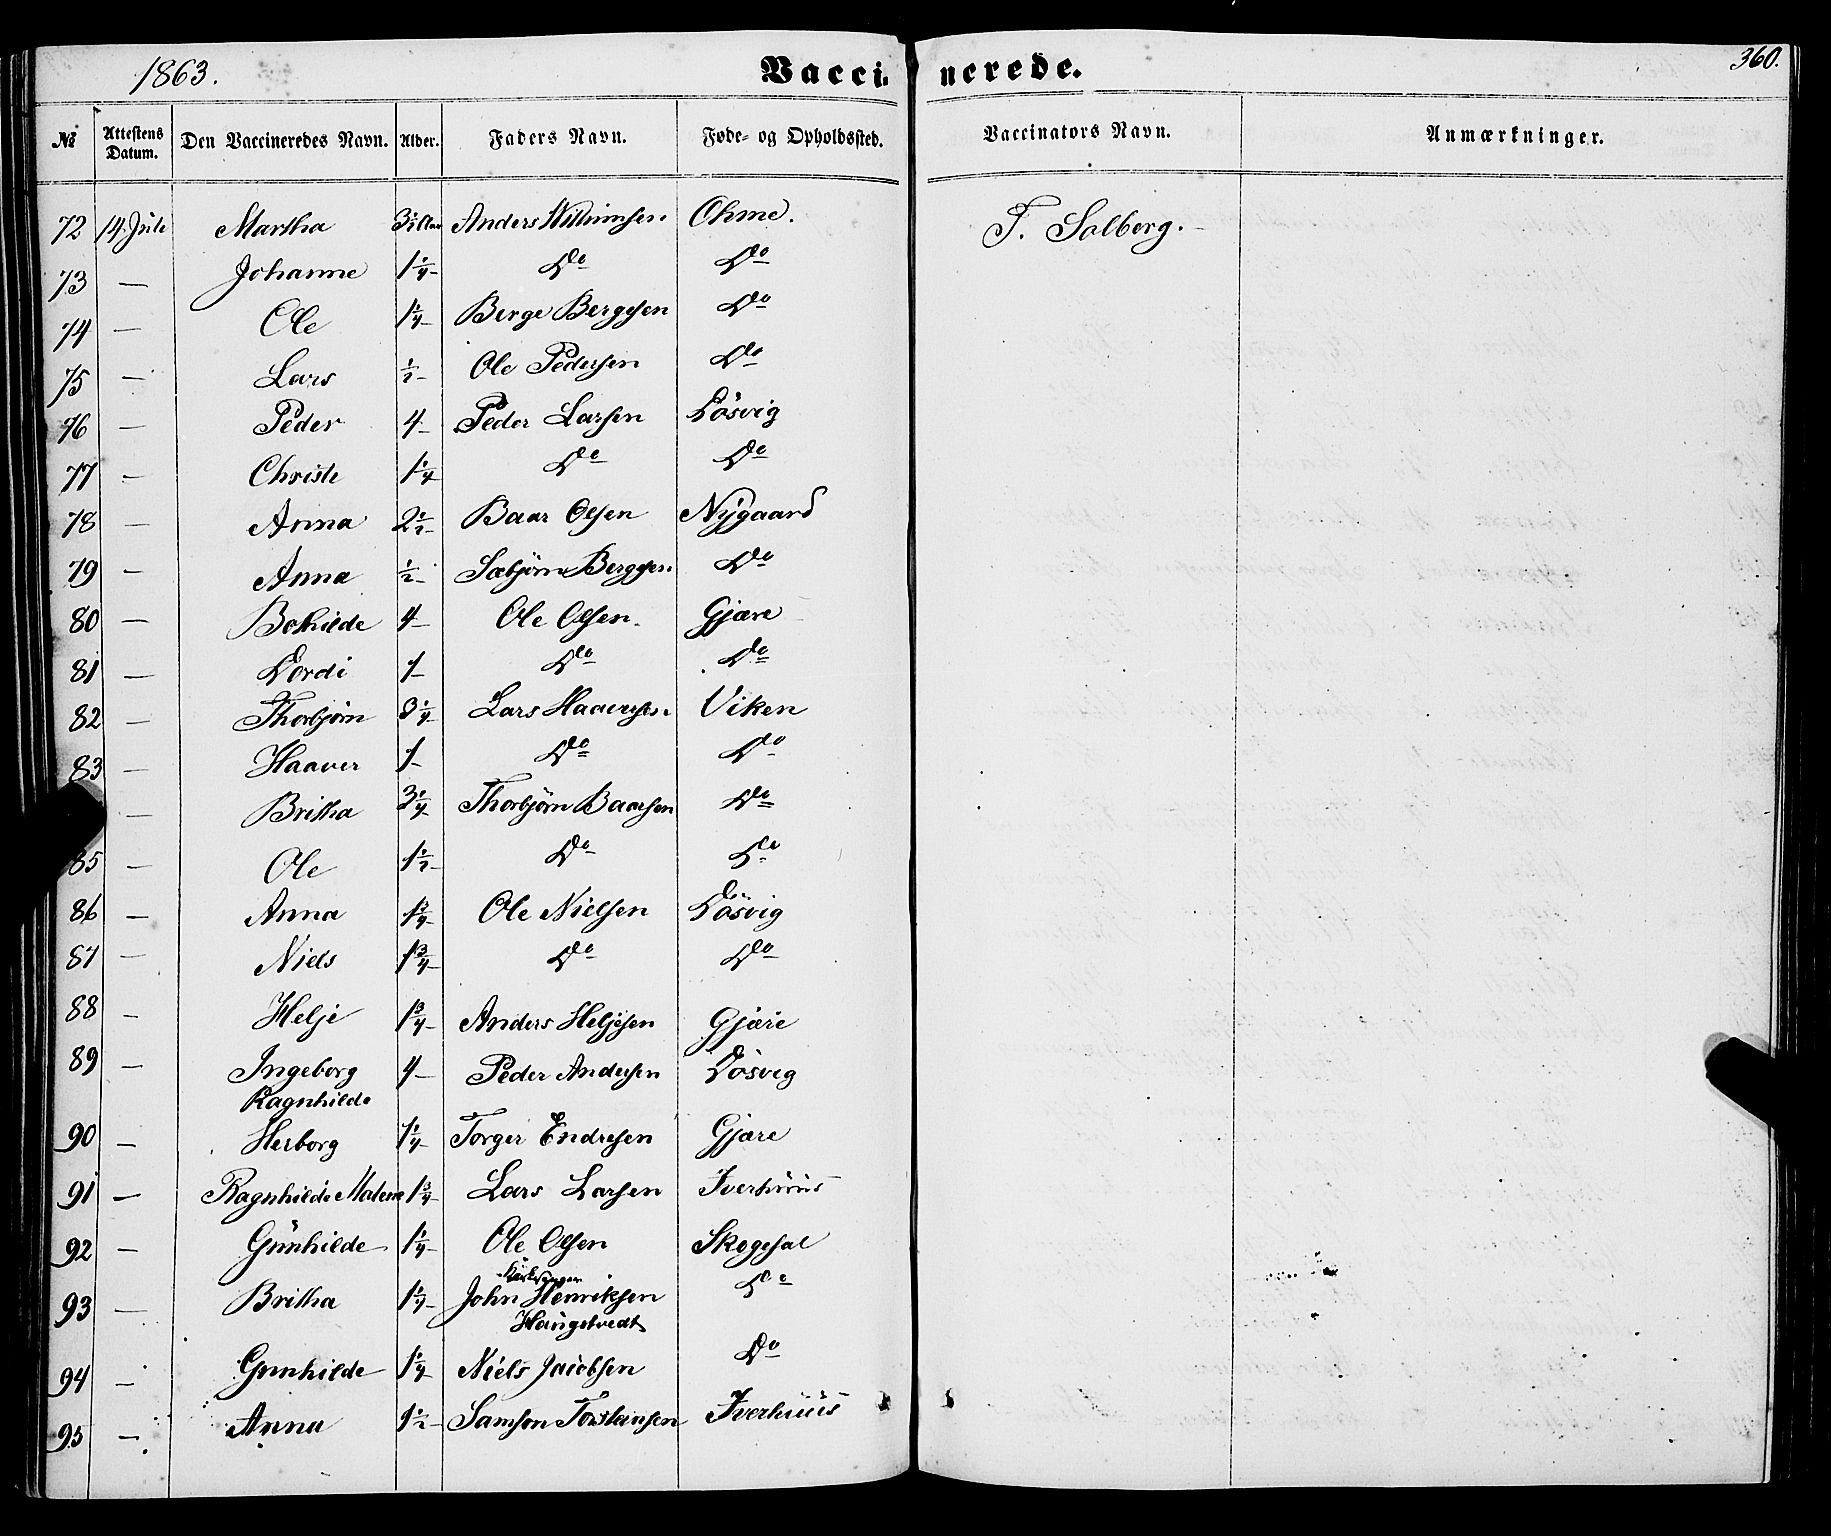 1863.
Vaccinerede.
360.
№ Attestens Datum. Den Vaccineredes Navn. Alder. Faders Navn. Føde- og Opholdssted. Vaccinators Navn. Anmærkninger.
72 14 Juli Martha 3½ Aar Anders Ohme. T. Solberg.
73 — Johanne 1¼ Do Do
74 — Ole 1¼ Berge Bergesen Do
75 — Lars ½ Ole Pedersen Do
76 — Peder 4 Peder Larsen Dösvig
77 — Christi 1¼ Do Do
78 — Anna 2½ Baar Olsen Nygaard
79 — Anna ½ Sæbjørn Bergesen Do
80 — Bothilde 4 Ole Olsen. Gjære
81 — Dordi 1 Do Do
82 — Thorbjörn 3¼ Lars Haaversen Viken
83 — Haaver 1 Do Do
— Britha 3¼ Thorbjörn Baarsen Do
85 — Ole 1½ Do Do
86 — Anna Ole Nielsen Dösvig
87 — Niels 1¾ Do Do
88 — Helje 1¾ Anders Heljesen Gjære
89 — Ingeborg 4 Peder Andersen Dösvig
Ragnhilde
90 — Herborg 1¼ Torger Endresen Gjære
91 — Ragnhilde Malene 1¾ Lars Larsen Iverhuus
92 — Gunhilde 1¼ Ole Olsen Skogesal
Kirkesanger
93 — Britha 1¼ John Henriksen Do
Haugstvedt
94 — Gunhilde 1¼ Niels Jacobsen Do
95 — Anna 1½ Samson Torsteinsen Iverhuus